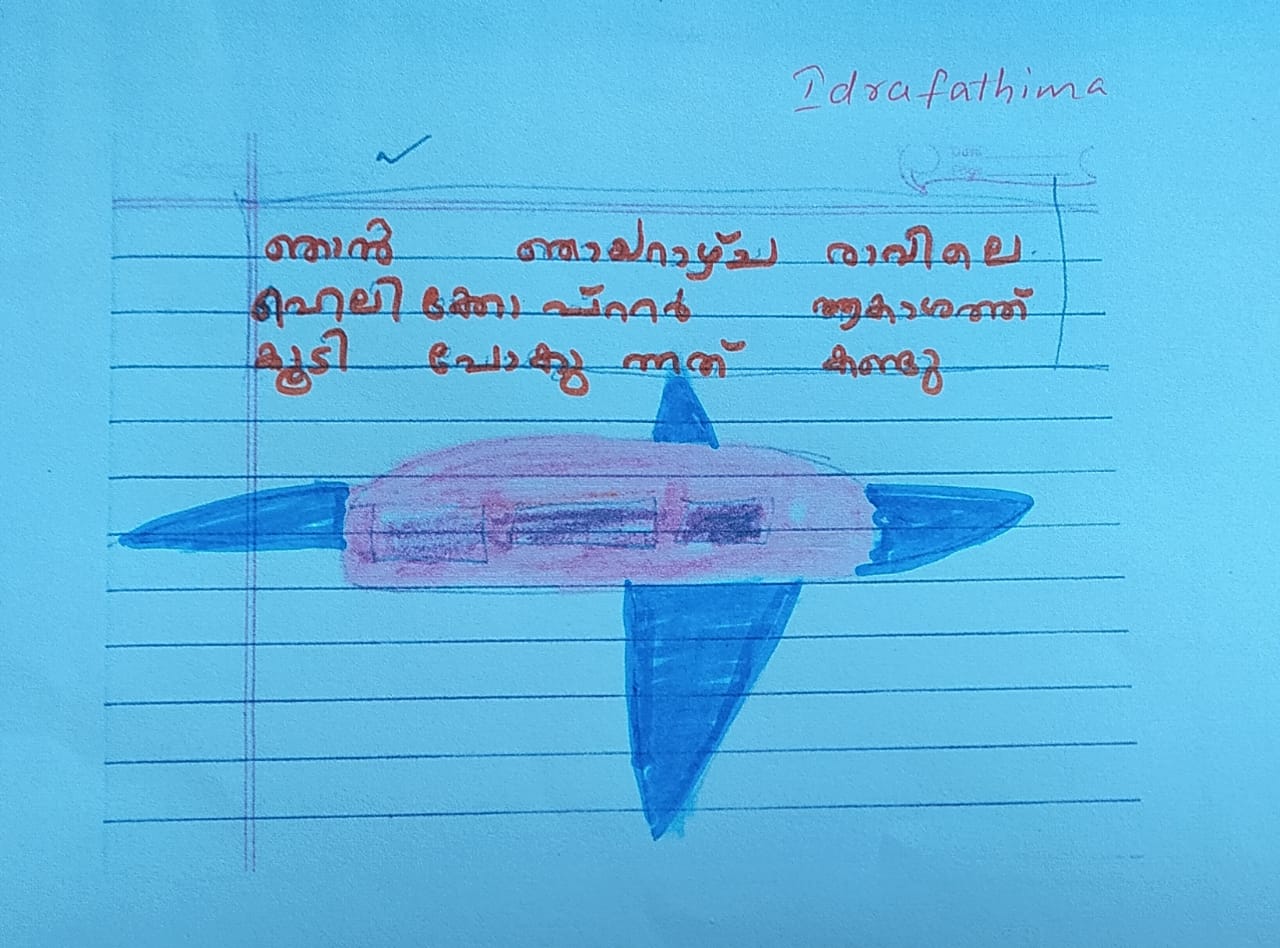 Idrafathima
ഞാൻ ഞായറാഴ്ച രാവിലെ
ഹെലികോപ്റ്റർ ആകാശത്ത്
കൂടി പോകുന്നത് കണ്ടു